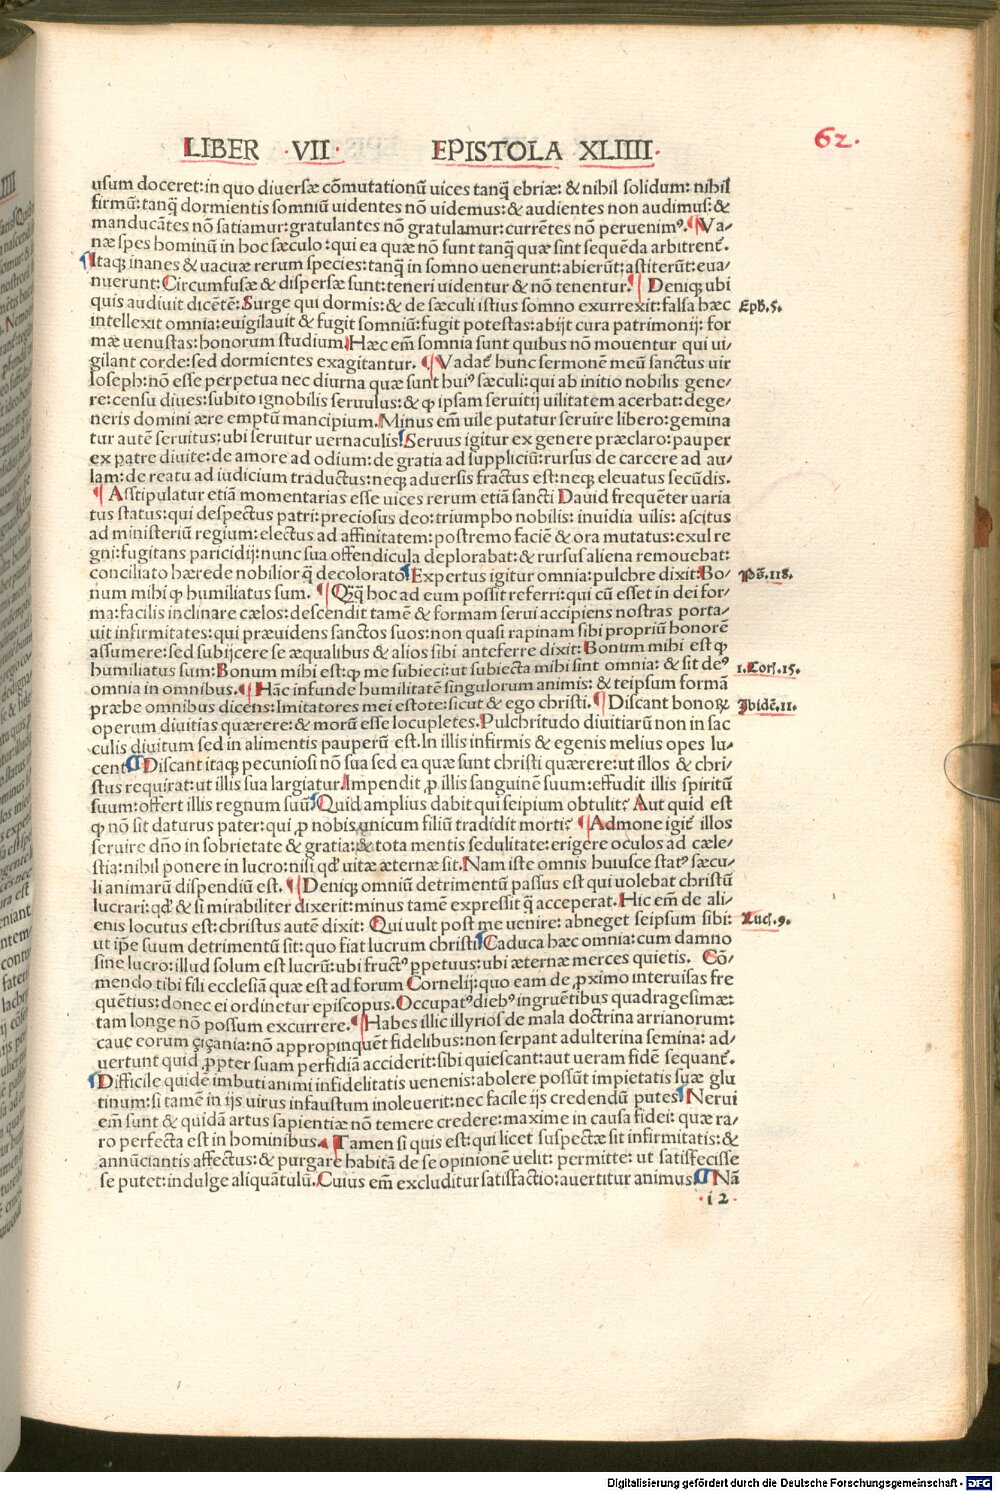 LIBER ·VII· EPISTOLA XLIIII·
62.
usum doceret:in quo diuersæ cōmutationū uices tanq̄ ebriæ: & nihil solidum: nihil
firmū:tanq̄ dormientis somniū uidentes nō uidemus:& audientes non audimus:&
manducātes nō satiamur:gratulantes nō gratulamur:currētes nō peruenimꝰ.¶Va-
næ spes hominū in hoc sæculo:qui ea quæ nō sunt tanq̄ quæ sint sequēda arbitrent̄.
¶Itaqꝫ inanes & uacuæ rerum species:tanq̄ in somno uenerunt:abierūt:astiterūt:eua-
nuerunt:Circumfusæ & dispersæ sunt:teneri uidentur & nō tenentur.¶ Deniqꝫ ubi
quis audiuit dicētē:Surge qui dormis:& de sæculi istius somno exurrexit:falsa hæc
Eph.5.
intellexit omnia:euigilauit & fugit somniū:fugit potestas:abijt cura patrimonij: for
mæ uenustas:honorum studium.Hæc em̄ somnia sunt quibus nō mouentur qui ui-
gilant corde:sed dormientes exagitantur. ¶Vadat̄ hunc sermonē meū sanctus uir
Ioseph:nō esse perpetua nec diurna quæ sunt huiꝰ sæculi:qui ab initio nobilis gene-
re:censu diues:subito ignobilis seruulus:& ꝙ ipsam seruitij uilitatem acerbat:dege-
neris domini ære emptū mancipium.Minus em̄ uile putatur seruire libero:gemina
tur autē seruitus:ubi seruitur uernaculis.¶Seruus igitur ex genere præclaro:pauper
ex patre diuite:de amore ad odium:de gratia ad suppliciū:rursus de carcere ad au-
lam:de reatu ad iudicium traductus:neqꝫ aduersis fractus est:neqꝫ eleuatus secūdis.
¶ Astipulatur etiā momentarias esse uices rerum etiā sancti Dauid frequēter uaria
tus status:qui despectus patri:preciosus deo:triumpho nobilis: inuidia uilis: ascitus
ad ministeriū regium:electus ad affinitatem:postremo faciē & ora mutatus:exul re
gni:fugitans paricidij:nunc sua offendicula deplorabat:& rursus aliena remouebat:
conciliato hærede nobilior q̄ decolorato.¶Expertus igitur omnia:pulchre dixit:Bo-
Ps̄.118.
num mihi ꝙ humiliatus sum. ¶Qꝫq̄ hoc ad eum possit referri:qui cū esset in dei for-
ma:facilis inclinare cælos:descendit tamē & formam serui accipiens nostras porta-
uit infirmitates:qui præuidens sanctos suos:non quasi rapinam sibi propriū honorē
assumere:sed subijcere se æqualibus & alios sibi anteferre dixit:Bonum mihi est ꝙ
humiliatus sum:Bonum mihi est:ꝙ me subieci:ut subiecta mihi sint omnia: & sit deꝰ
1.Corī.15.
omnia in omnibus.¶Hāc infunde humilitatē singulorum animis: & teipsum formā
præbe omnibus dicens:Imitatores mei estote:sicut & ego christi.¶Discant bonoꝝ
Ibidē.11.
operum diuitias quærere:& morū esse locupletes.Pulchritudo diuitiarū non in sac
culis diuitum sed in alimentis pauperū est.In illis infirmis & egenis melius opes lu-
cent.¶Discant itaqꝫ pecuniosi nō sua sed ea quæ sunt christi quærere:ut illos & chri-
stus requirat:ut illis sua largiatur.Impendit ꝓ illis sanguinē suum:effudit illis spiritū
suum:offert illis regnum suū.¶Quid amplius dabit qui seipium obtulit? Aut quid est
ꝙ nō sit daturus pater:qui ꝓ nobis unicum filiū tradidit morti? ¶Admone igit̄ illos
seruire dn̄o in sobrietate & gratia:& tota mentis sedulitate:erigere oculos ad cæle-
stia:nihil ponere in lucro:nisi qd̄ uitæ æternæ sit.Nam iste omnis huiusce statꝰ sæcu-
li animarū dispendiū est. ¶Deniqꝫ omniū detrimentū passus est qui uolebat christū
lucrari:qd̄ & si mirabiliter dixerit:minus tamē expressit q̄ acceperat.Hic em̄ de ali-
enis locutus est:christus autē dixit: Qui uult post me uenire: abneget seipsum sibi:
Lucī.9.
ut ip̄e suum detrimentū sit:quo fiat lucrum christi.¶Caduca hæc omnia:cum damno
sine lucro:illud solum est lucrū:ubi fructꝰ ꝑpetuus:ubi æternæ merces quietis. Cō-
mendo tibi fili ecclesiā quæ est ad forum Cornelij:quo eam de ꝓximo interuisas fre
quētius:donec ei ordinetur episcopus.Occupatꝰ diebꝰ ingruētibus quadragesimæ:
tam longe nō possum excurrere.¶Habes illic illyrios de mala doctrina arrianorum:
caue eorum çiçania:nō appropinquēt fidelibus:non serpant adulterina semina: ad-
uertunt quid ꝓpter suam perfidiā acciderit:sibi quiescant:aut ueram fidē sequant̄.
¶Difficile quidē imbuti animi infidelitatis uenenis:abolere possūt impietatis suæ glu
tinum:si tamē in ijs uirus infaustum inoleuerit:nec facile ijs credendū putes.¶Nerui
em̄ sunt & quidā artus sapientiæ nō temere credere:maxime in causa fidei: quæ ra-
ro perfecta est in hominibus.¶ Tamen si quis est:qui licet suspectæ sit infirmitatis:&
annūciantis affectus:& purgare habitā de se opinionē uelit: permitte: ut satisfecisse
se putet:indulge aliquātulū.Cuius em̄ excluditur satisfactio:auertitur animus.¶Nā
·i 2·
Digitalisierung gefördert durch die Deutsche Forschungsgemeinschaft - DFG